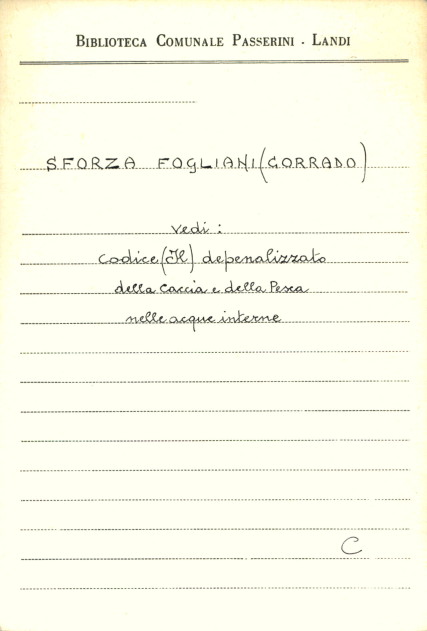 BIBLIOTECA COMUNALE PASSERINI - LANDI
SFORZA FOGLIANI (CORRADO)
vedi:
Codice (Il) depenalizzato
della Caccia e della Pesca
nelle acque interne
C